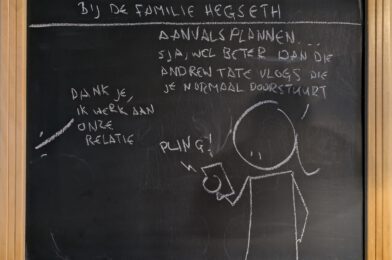 BIJ DE FAMILIE HEGSETH
AANVALSPLANNEN...
SJA, WEL BETER DAN DIE
ANDREW TATE VLOGS DIE
JE NORMAAL DOORSTUURT
DANK JE,
IK WERK AAN
ONZE
RELATIE
PLING!